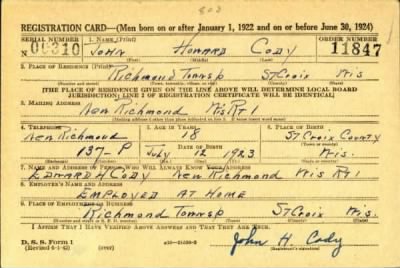 803
REGISTRATION CARD—(Men born on or after January 1, 1922 and on or before June 30, 1924)
SERIAL NUMBER 1. NAME (Print) ORDER NUMBER
N 00310 JOHN HOWARD CODY 11847
(First) (Middle) (Last)
2. PLACE OF RESIDENCE (Print)
RICHMOND TOWNSP ST CROIX WIS
(Number and street) (Town, township, village, or city) (County) (State)
[THE PLACE OF RESIDENCE GIVEN ON THE LINE ABOVE WILL DETERMINE LOCAL BOARD
JURISDICTION; LINE 2 OF REGISTRATION CERTIFICATE WILL BE IDENTICAL]
3. MAILING ADDRESS
NEW RICHMOND WIS RT 1
[Mailing address if other than place indicated on line 2. If same insert word same]
4. TELEPHONE 5. AGE IN YEARS 6. PLACE OF BIRTH
NEW RICHMOND 18 ST CROIX COUNTY
DATE OF BIRTH
137-P JULY 12 1923 WIS.
(Exchange) (Number) (Mo.) (Day) (Yr.) (State or country)
7. NAME AND ADDRESS OF PERSON WHO WILL ALWAYS KNOW YOUR ADDRESS
EDWARD H CODY NEW RICHMOND WIS RT 1
8. EMPLOYER'S NAME AND ADDRESS
EMPLOYED AT HOME
9. PLACE OF EMPLOYMENT OR BUSINESS
RICHMOND TOWNSP ST CROIX WIS
(Number and street or R. F. D. number) (Town) (County) (State)
I AFFIRM THAT I HAVE VERIFIED ABOVE ANSWERS AND THAT THEY ARE TRUE.
D. S. S. Form 1
(Revised 6-1-42) (over)
John H. Cody
(Registrant's signature)